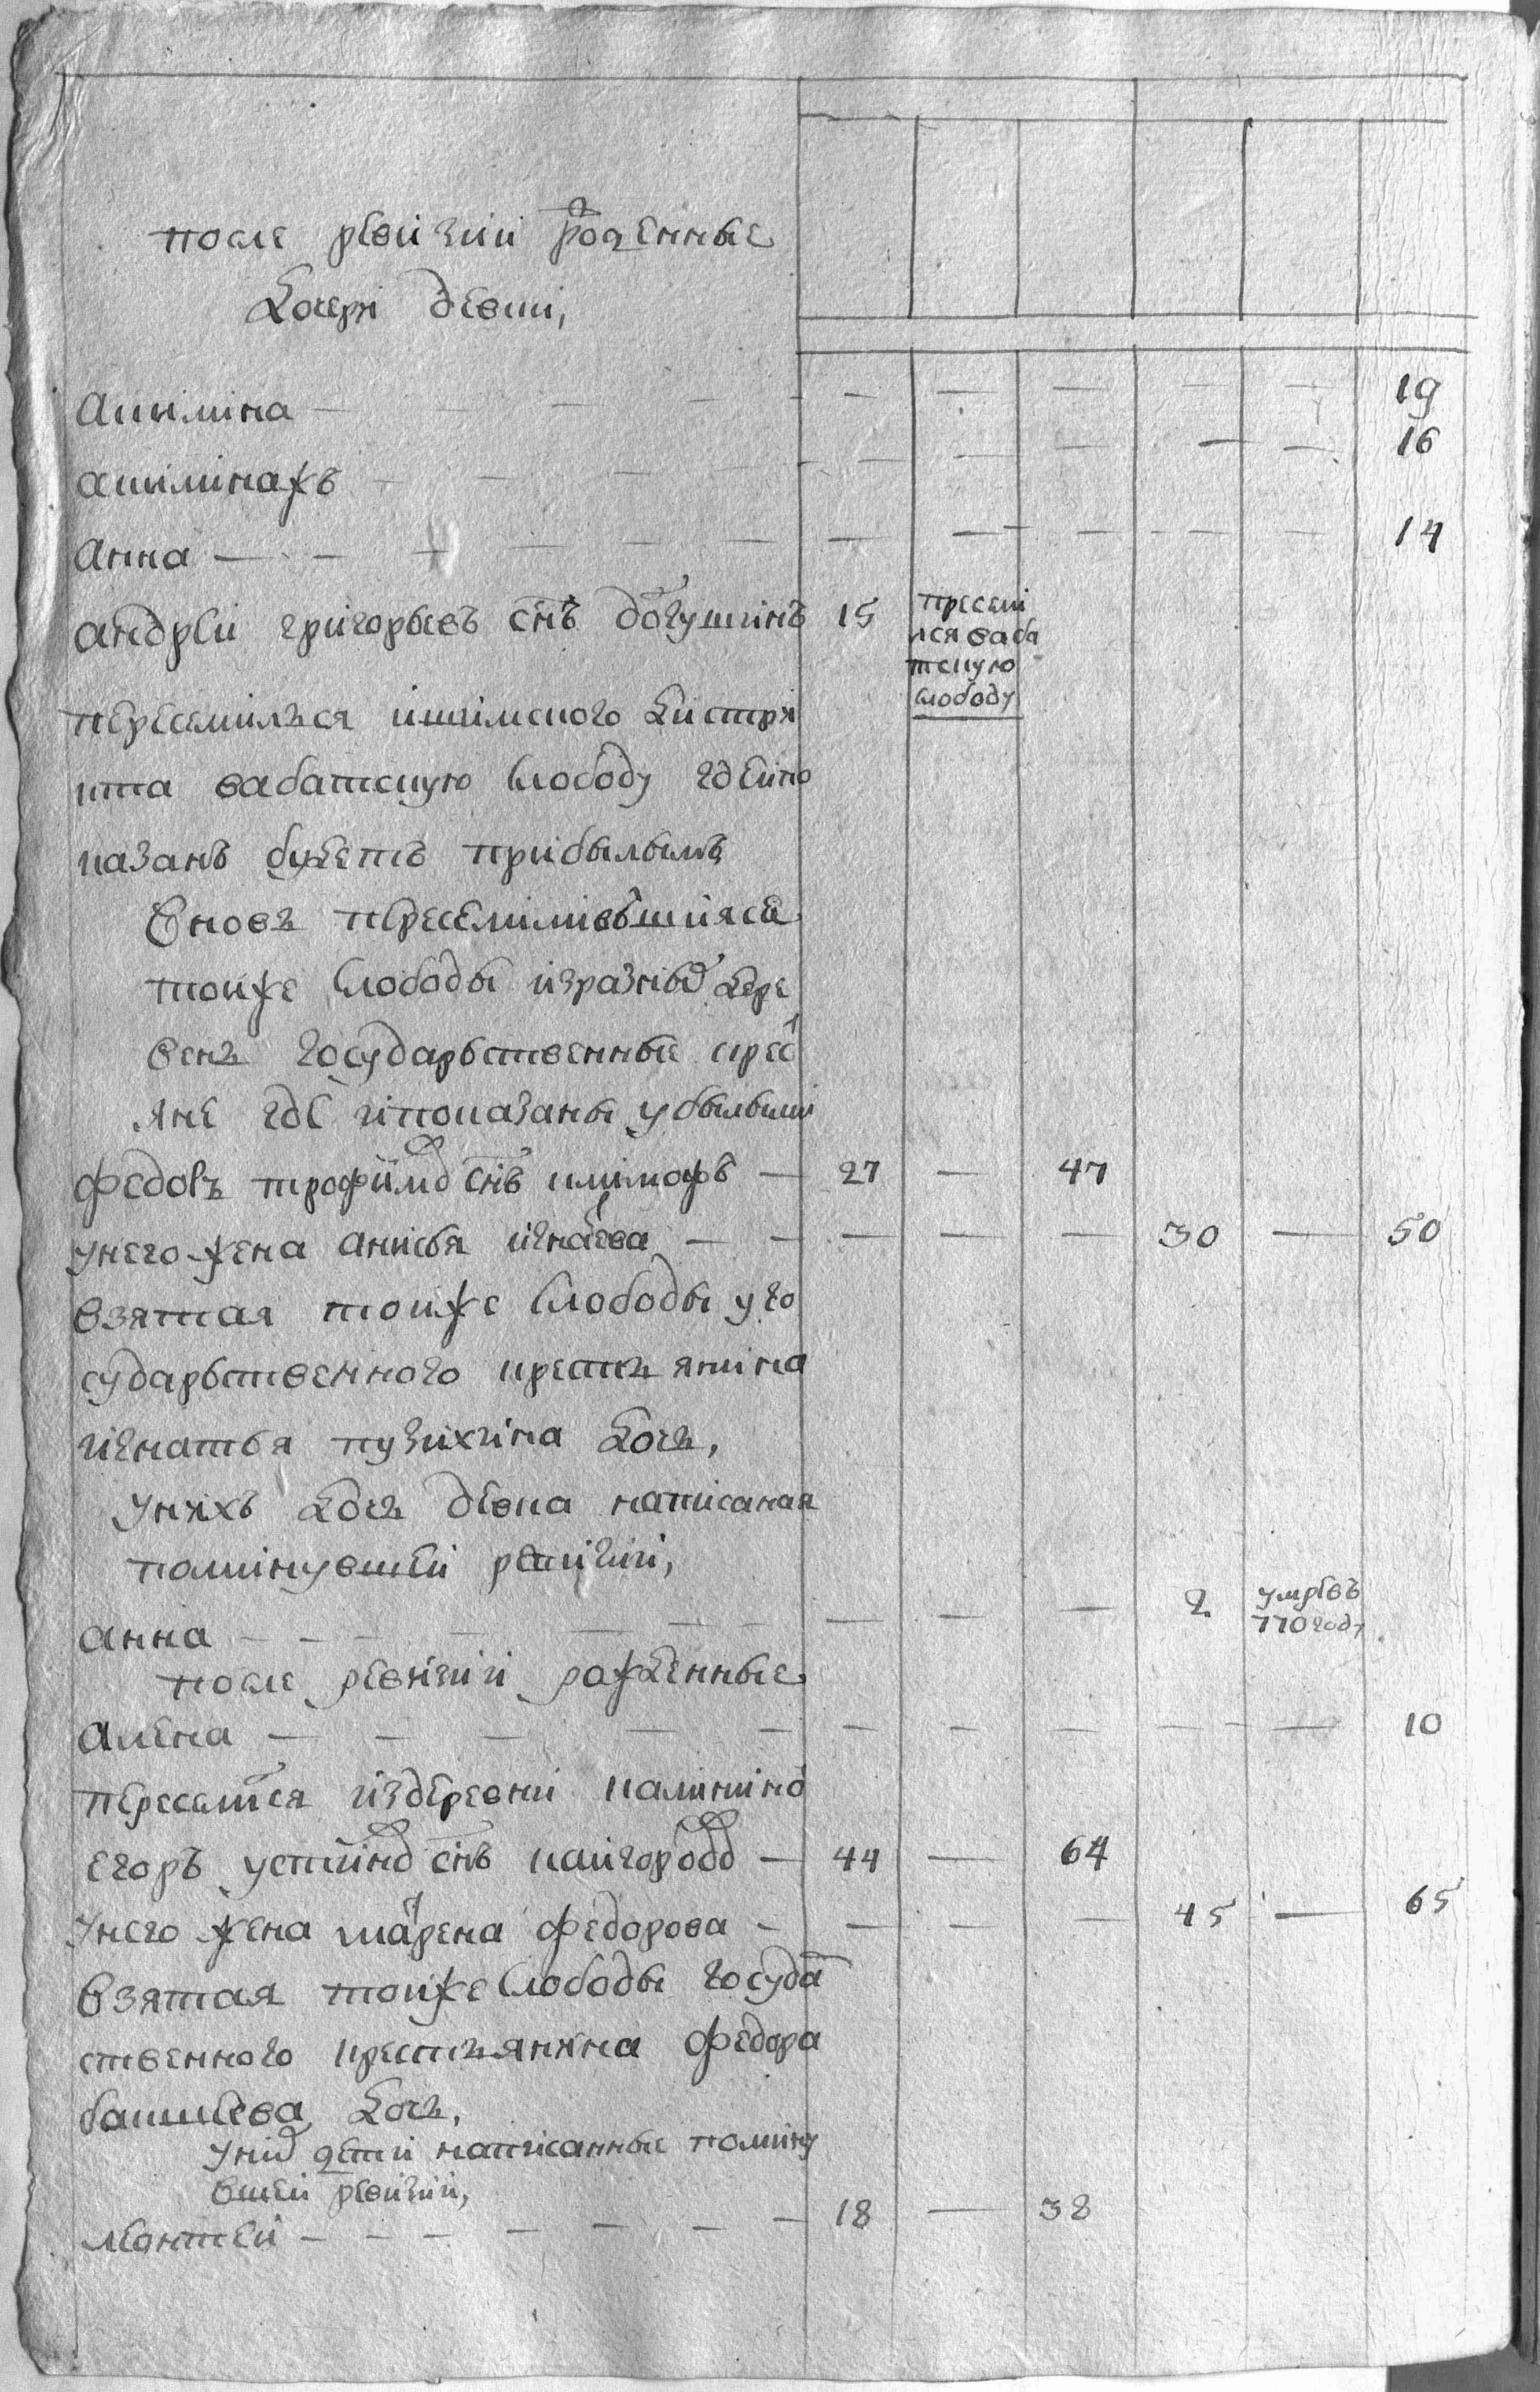 после ревизии рожденные
дочери девки,
Акилина — — — — — — — — — 19
акилинажъ — — — — — — — — 16
Анна — — — — — — — — — — 14
андрей григорьевъ снъ долгушинъ 15 пресели
лся ваба
тскую
слободу
переселился ишимского дистри
кта вабатскую слободу гдеипо
казанъ будетъ прибылымъ
Вновь переселившияся
тоиже слободы изразных дере
вень государьственные крес
яне где ипоказаны убылыми
федоръ трофимов снъ климофъ — 27 — 47
унего жена анисья игнатева — — — — — 30 — 50
взятая тоиже слободы уго
сударьственного крестьянина
игнатья пузихина дочь,
унихъ дочь девка написаная
поминувшей ревизии,
анна — — — — — — — — 2 умрѣвъ
770году
после ревизии рожденные
алена — — — — — — — — — — 10
переселился издеревни калинино
егоръ устинов снъ каигородов — 44 — 64
унего жена матрена федорова — — — — 45 — 65
взятая тоиже слободы государ
ственного крестьянина федора
дочь,
уних дети написанные помину
вшей ревизии,
леонтей — — — — — — — 18 — 38